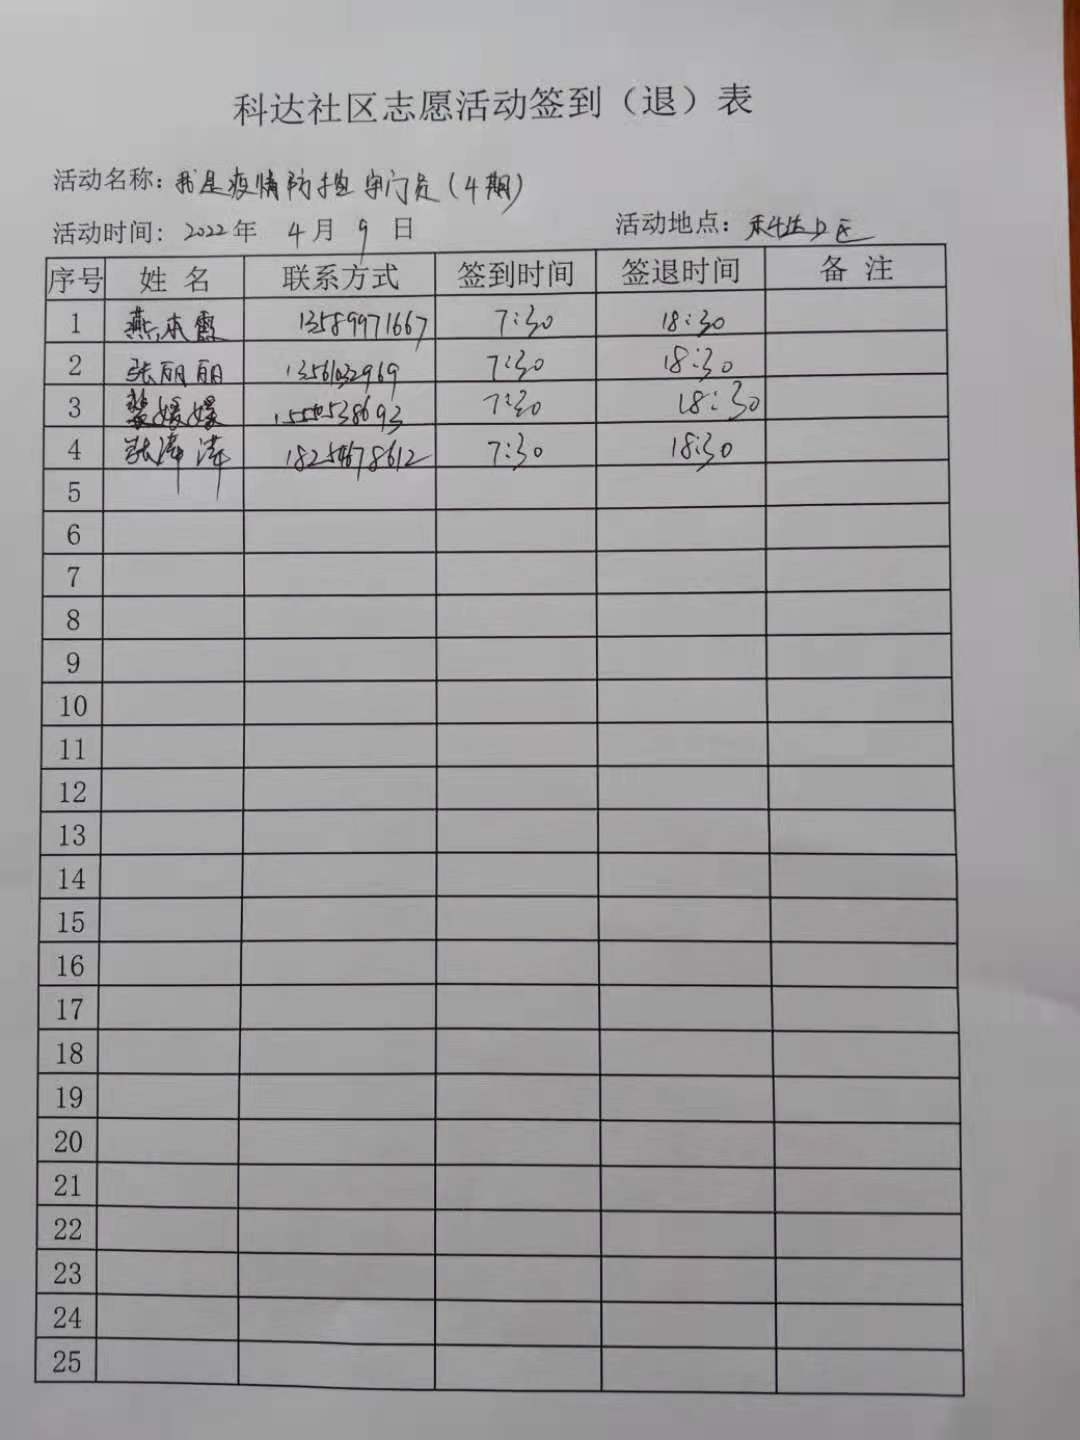 科达社区志愿活动签到（退）表
活动名称：我是疫情防控守门员（4期）
活动时间：2022年 4月 9日 活动地点：科达小区
序号 姓名 联系方式 签到时间 签退时间 备注
1 燕本霞 13589971667 7:30 18:30
2 张丽丽 13561032969 7:30 18:30
3 媛媛 15550538693 7:30 18:30
4 张涛涛 18254678612 7:30 18:30
5
6
7
8
9
10
11
12
13
14
15
16
17
18
19
20
21
22
23
24
25